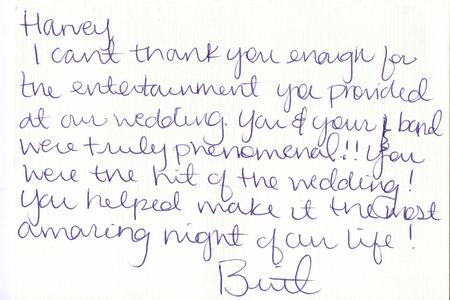 Harvey,
I can't thank you enough for
the entertainment you provided
at our wedding. You & your band
were truly phenomenal!! You
were the hit of the wedding!
You helped make it the most
amazing night of our life!